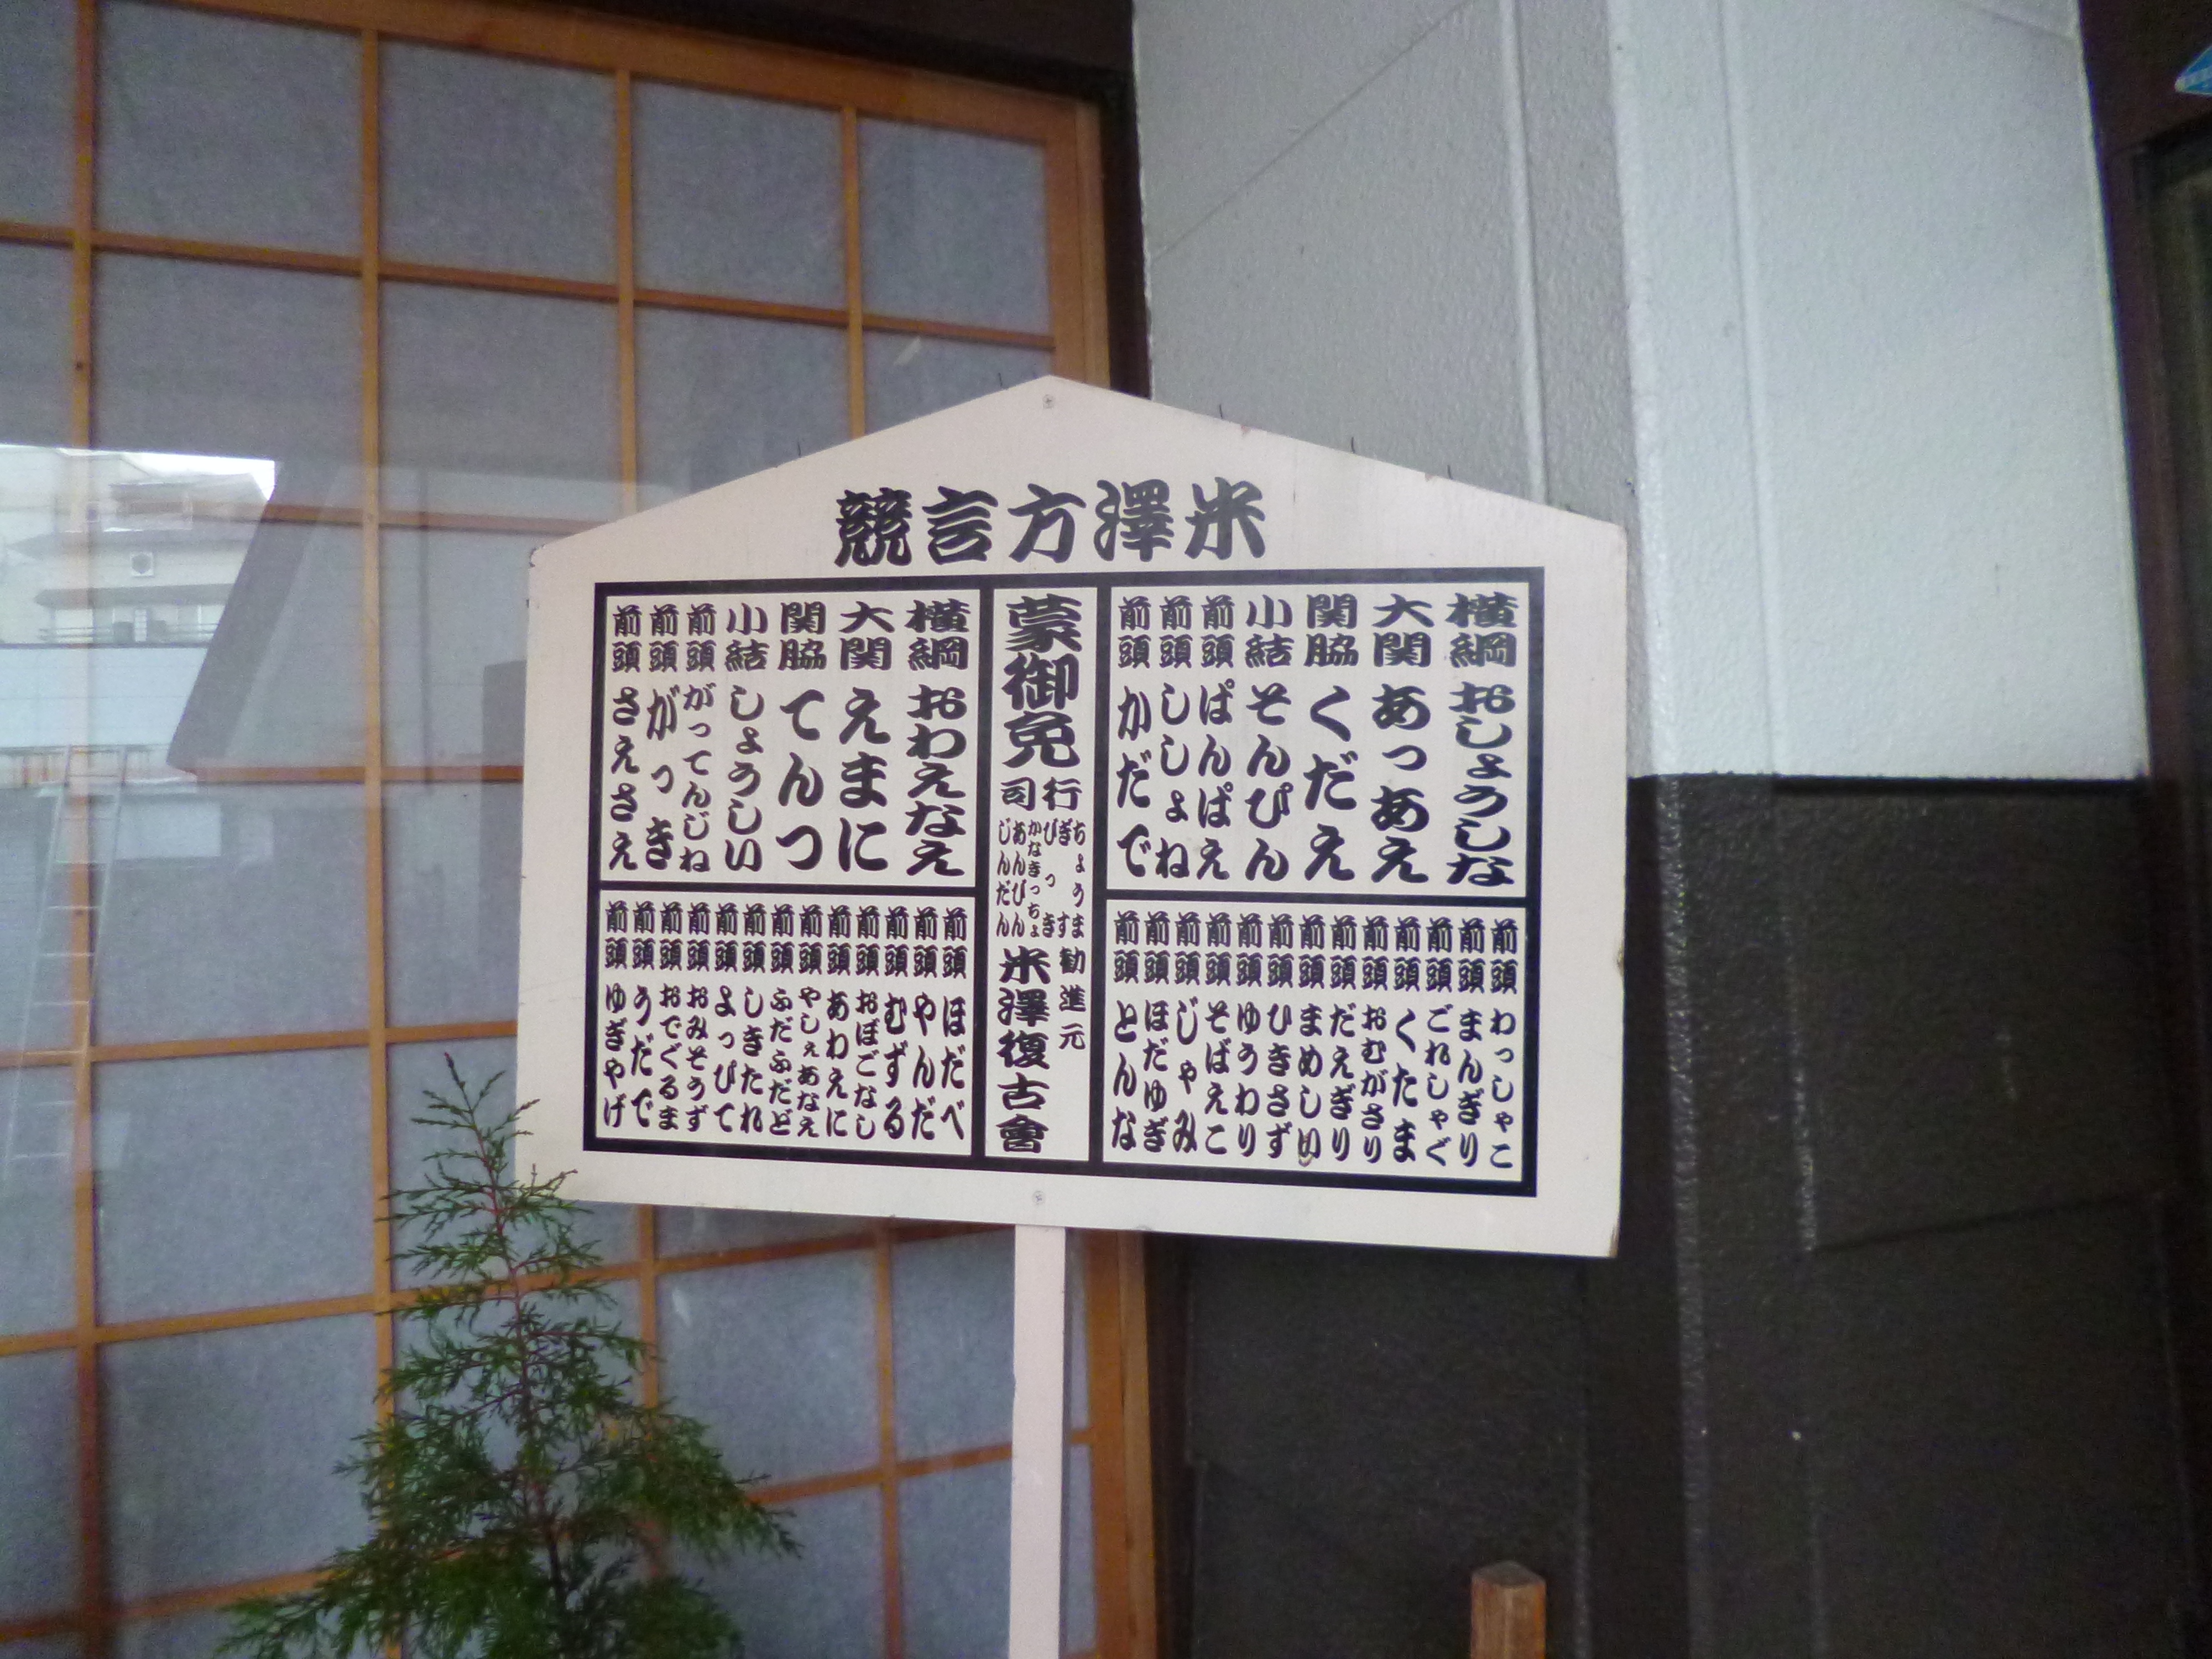 米澤方言競
横綱 おしょうしな
大関 あっあえ
関脇 くだえ
小結 そんぴん
前頭 ぱんぱえ
前頭 ししょね
前頭 かだで
前頭 わっしゃこ
前頭 まんぎり
前頭 ごれしゃぐ
前頭 くたま
前頭 おむがさり
前頭 だえぎり
前頭 まめしい
前頭 ひきさず
前頭 ゆうわり
前頭 そばえこ
前頭 じゃみ
前頭 ほだゆぎ
前頭 とんな
蒙御免
行司
ちょうま
ぎす
びっき
かなきっちょ
あんびん
じんだん
勧進元
米澤復古會
横綱 おわえなえ
大関 えまに
関脇 てんつ
小結 しょうしい
前頭 がってんじね
前頭 がっき
前頭 さえさえ
前頭 ほだべ
前頭 やんだ
前頭 むずる
前頭 おぼごなし
前頭 あわえに
前頭 やしぇあなえ
前頭 ふだふだど
前頭 しきたれ
前頭 よっぴて
前頭 おみそうず
前頭 おでぐるま
前頭 うだで
前頭 ゆぎやげ